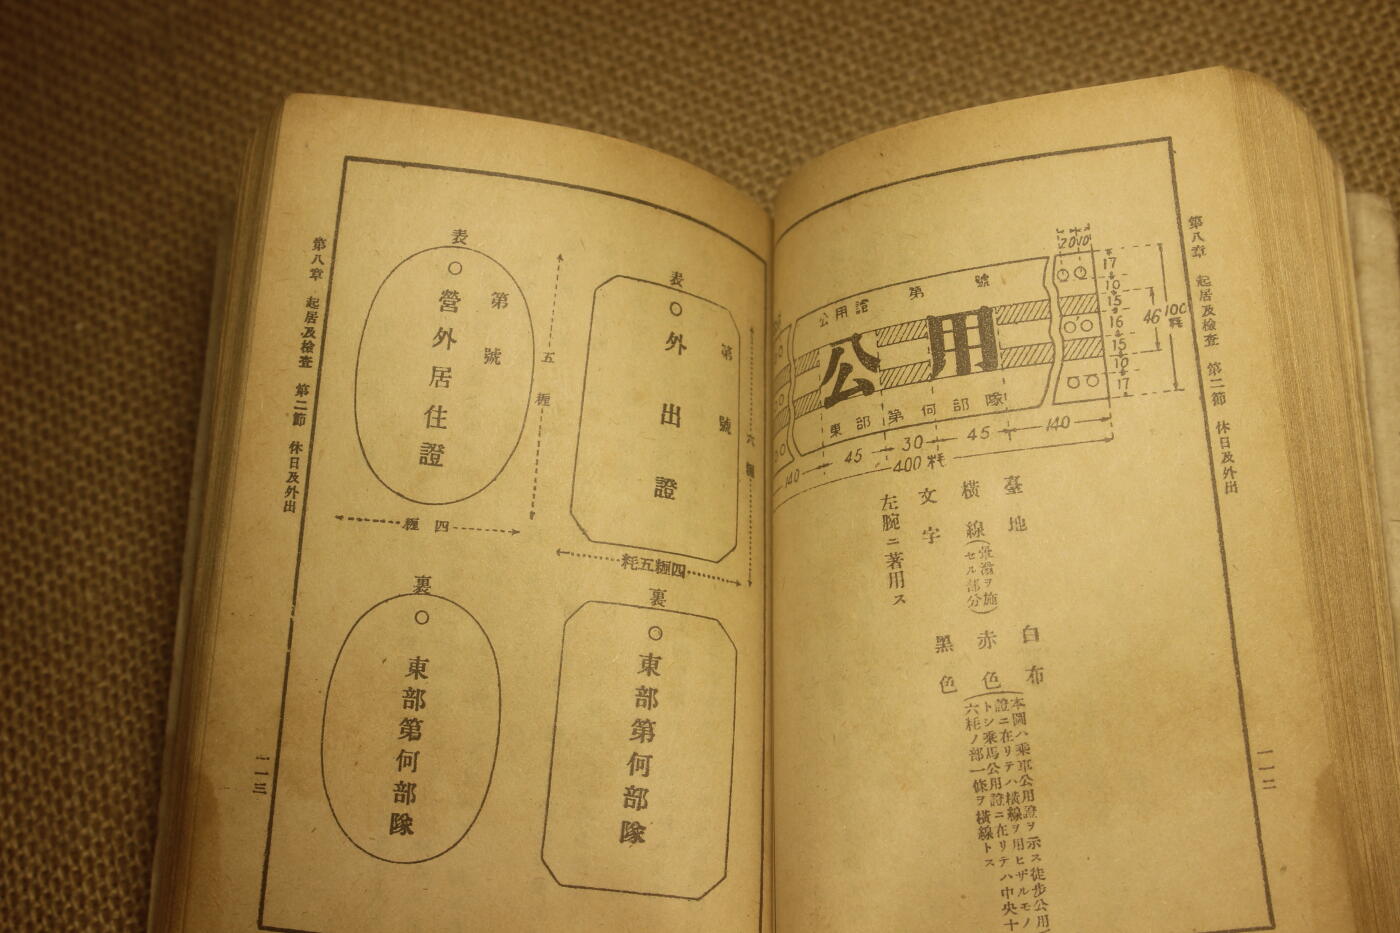 第八章 起居及檢査 第二節 休日及外出
一一二
20 10
17
10
15
16
15
10
17
46
100粍
公用證 第 號
公用
東部第何部隊
140
45
30
45
140
400粍
臺地 白布
橫線(彩澁ヲ施セル部分) 赤色
文字 黑色
(本圖ハ乘車公用證ヲ示ス徒步公用
證ニ在リテハ橫線ヲ用ヒザルモノ
トシ乘馬公用證ニ在リテハ中央十
六粍ノ部一條ヲ橫線トス
左腕ニ著用ス
表
第 號
外出證
四糎五粍
裏
東部第何部隊
表
第 號
營外居住證
五糎
四糎
裏
東部第何部隊
第八章 起居及檢査 第二節 休日及外出
一一三